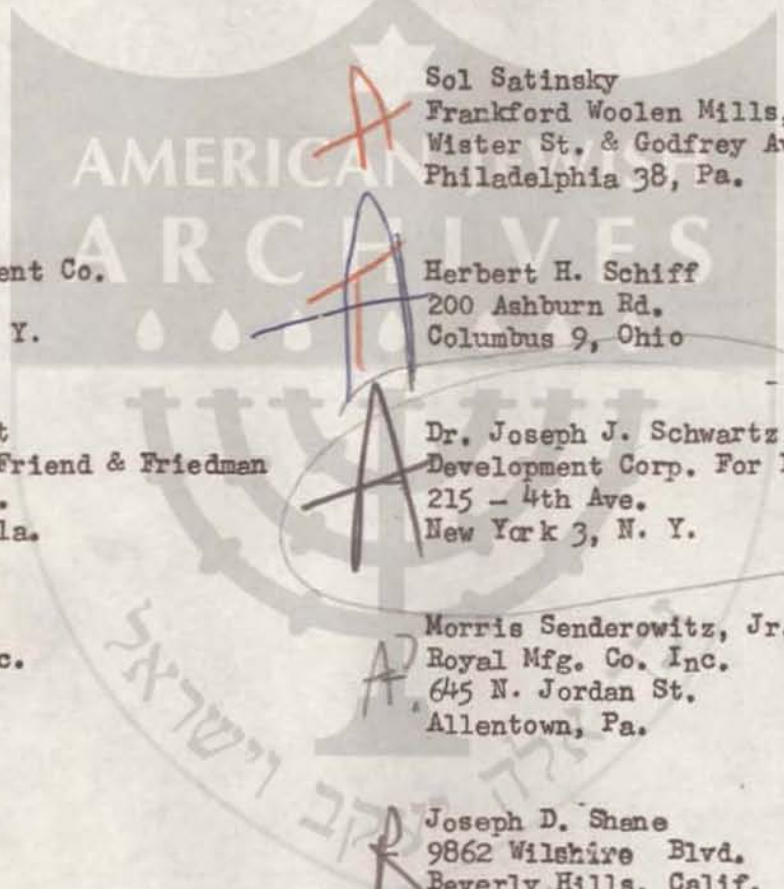 AMERICAN JEWISH
ARCHIVES
אלה יעקב וישראל
ent Co.
Y.
t
Friend & Friedman
.
la.
c.
A
Sol Satinsky
Frankford Woolen Mills,
Wister St. & Godfrey Av
Philadelphia 38, Pa.
A
Herbert H. Schiff
200 Ashburn Rd.
Columbus 9, Ohio
A
Dr. Joseph J. Schwartz
Development Corp. For
215 - 4th Ave.
New York 3, N. Y.
A?
Morris Senderowitz, Jr.
Royal Mfg. Co. Inc.
645 N. Jordan St.
Allentown, Pa.
R
Joseph D. Shane
9862 Wilshire Blvd.
Beverly Hills, Calif.